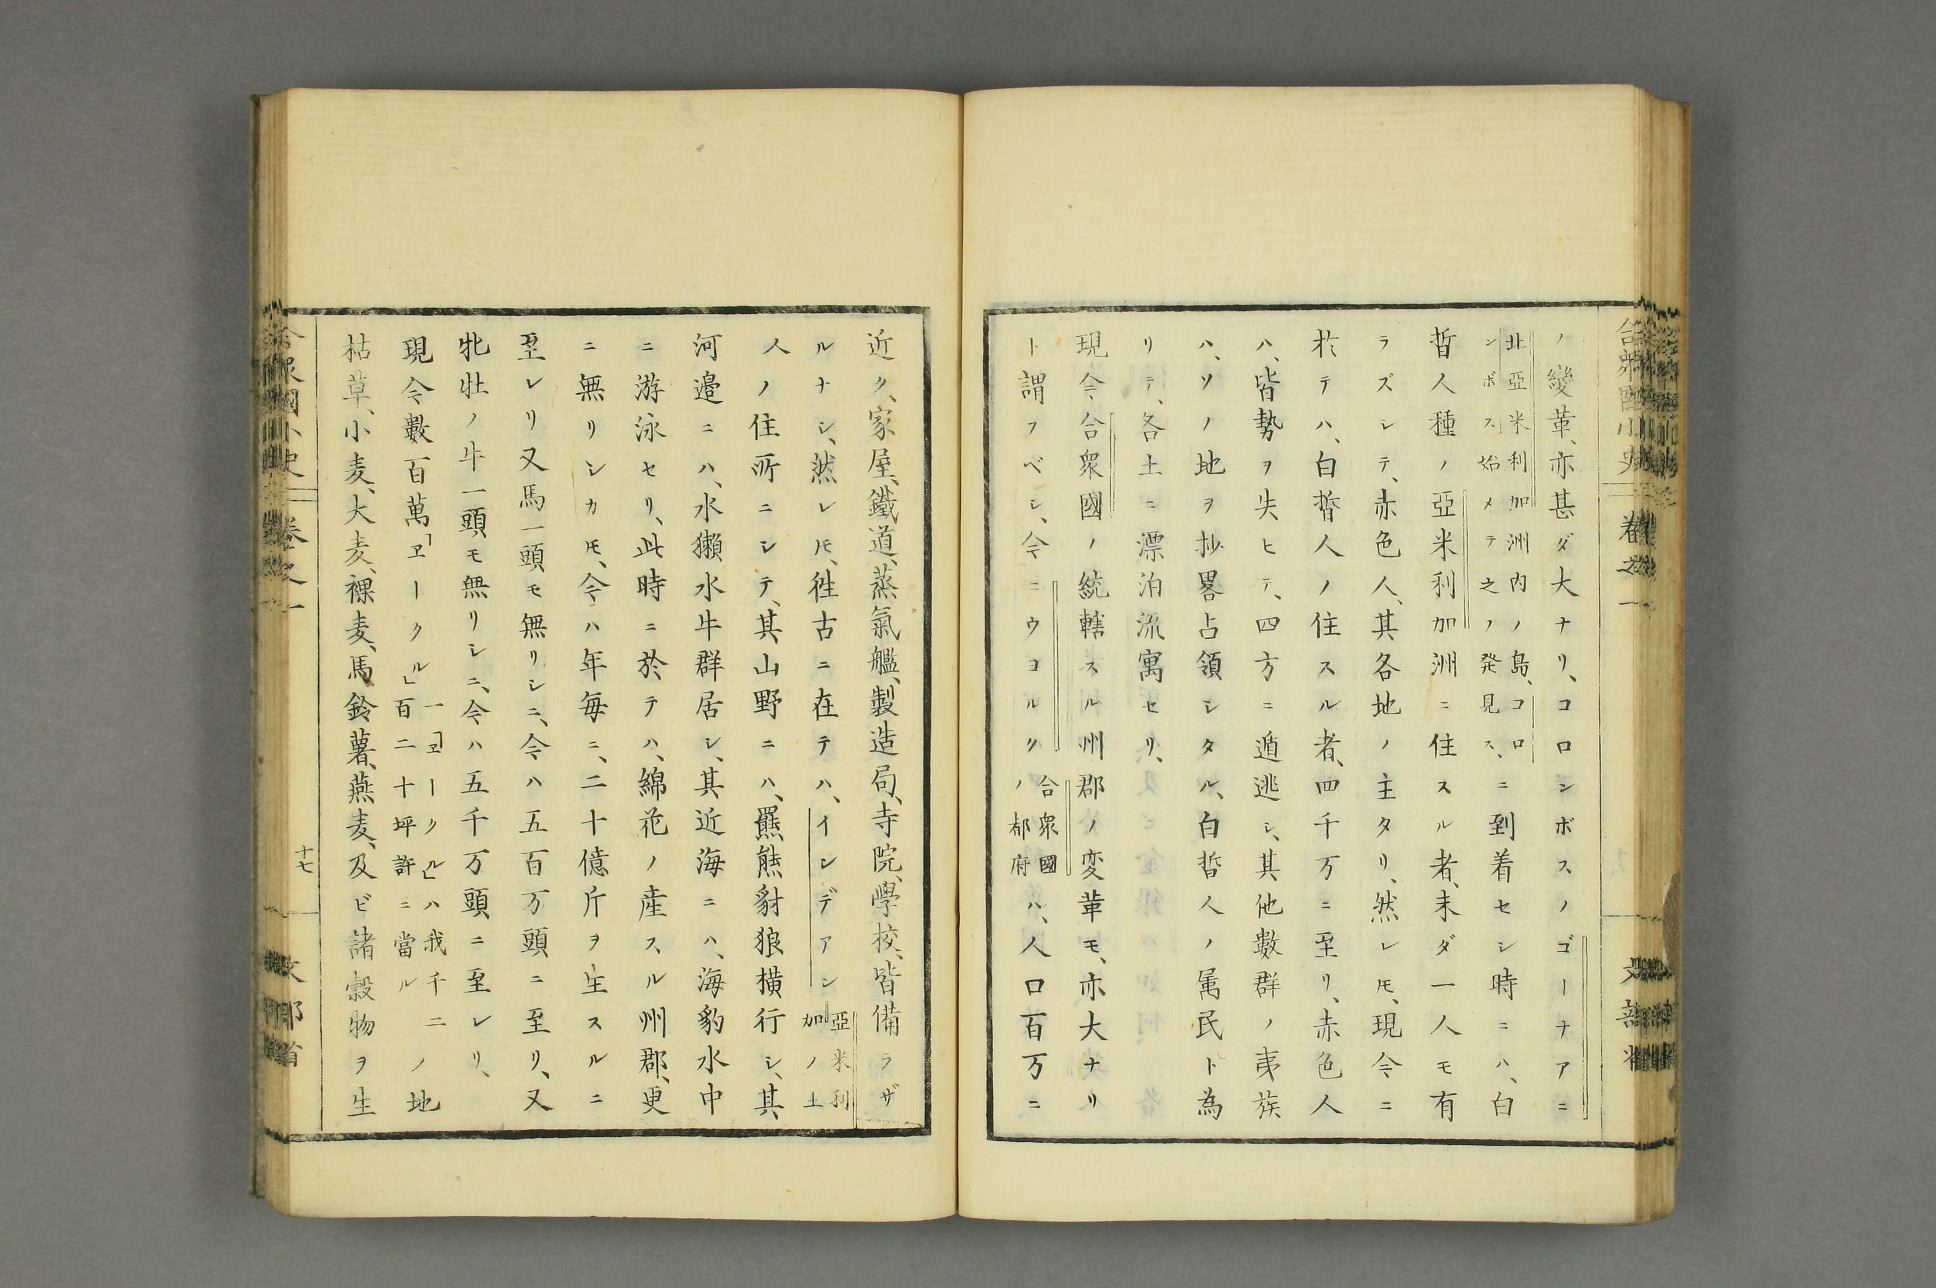 合衆國小史 卷之一 文部省
ノ變革、亦甚ダ大ナリ、コロンボスノゴーナアニ
北亞米利加洲内ノ島、コロ
ンボス、始メテ之ノ発見ス、
ニ到着セシ時ニハ、白
晳人種ノ亞米利加洲ニ住スル者、未ダ一人モ有
ラズシテ、赤色人、其各地ノ主タリ、然レ𪜈、現今ニ
於テハ、白晳人ノ住スル者、四千万ニ至リ、赤色人
ハ、皆勢ヲ失ヒテ、四方ニ遁逃シ、其他數群ノ夷族
ハ、ソノ地ヲ抄畧占領シタル、白晳人ノ属民ト為
リテ、各土ニ漂泊流寓セリ、
現今合衆國ノ統轄スル州郡ノ変革モ、亦大ナリ
ト謂フベシ、今ニウヨルク
合衆國
ノ都府
ハ、人口百万ニ
近ク、家屋、鐵道、蒸氣艦、製造局、寺院、學校、皆備ラザ
ルナシ、然レ𪜈、徃古ニ在テハ、インデアン
亞米利
加ノ土
人ノ住所ニシテ、其山野ニハ、羆熊豺狼横行シ、其
河邉ニハ、水獺水牛群居シ、其近海ニハ、海豹水中
ニ游泳セリ、此時ニ於テハ、綿花ノ産スル州郡、更
ニ無リシカ𪜈、今ハ年毎ニ、二十億斤ヲ生スルニ
至レリ又馬一頭モ無リシニ、今ハ五百万頭ニ至リ、又
牝牡ノ牛一頭モ無リシニ、今ハ五千万頭ニ至レリ、
現今數百萬「ヱークル」
一「ヱークル」ハ我千二
百二十坪許ニ當ル
ノ地
枯草、小麦、大麦、裸麦、馬鈴薯、燕麦、及ビ諸穀物ヲ生
合衆國小史 卷之一 十七 文部省